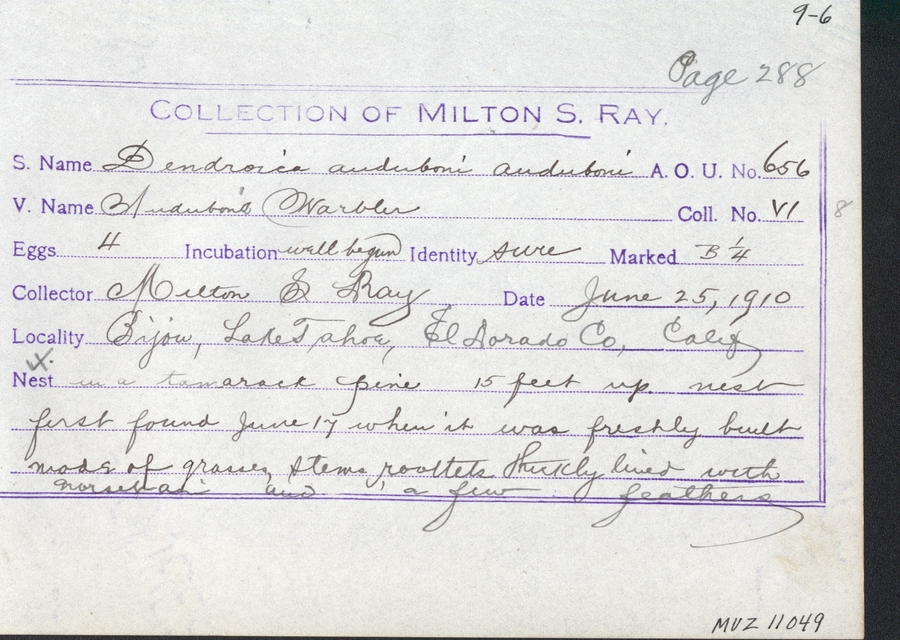 9-6
Page 288
COLLECTION OF MILTON S. RAY.
S. Name Dendroica auduboni auduboni A. O. U. No. 656
V. Name Audubon's Warbler Coll. No. VI 8
Eggs 4 Incubation well begun Identity sure Marked B 1/4
Collector Milton S Ray Date June 25, 1910
Locality Bijou, Lake Tahoe, El Dorado Co, Calif
Nest in a tamarack pine 15 feet up. nest
first found June 17 when it was freshly built
made of grasses, stems rootlets thickly lined with
horsehair and a few feathers
MVZ 11049